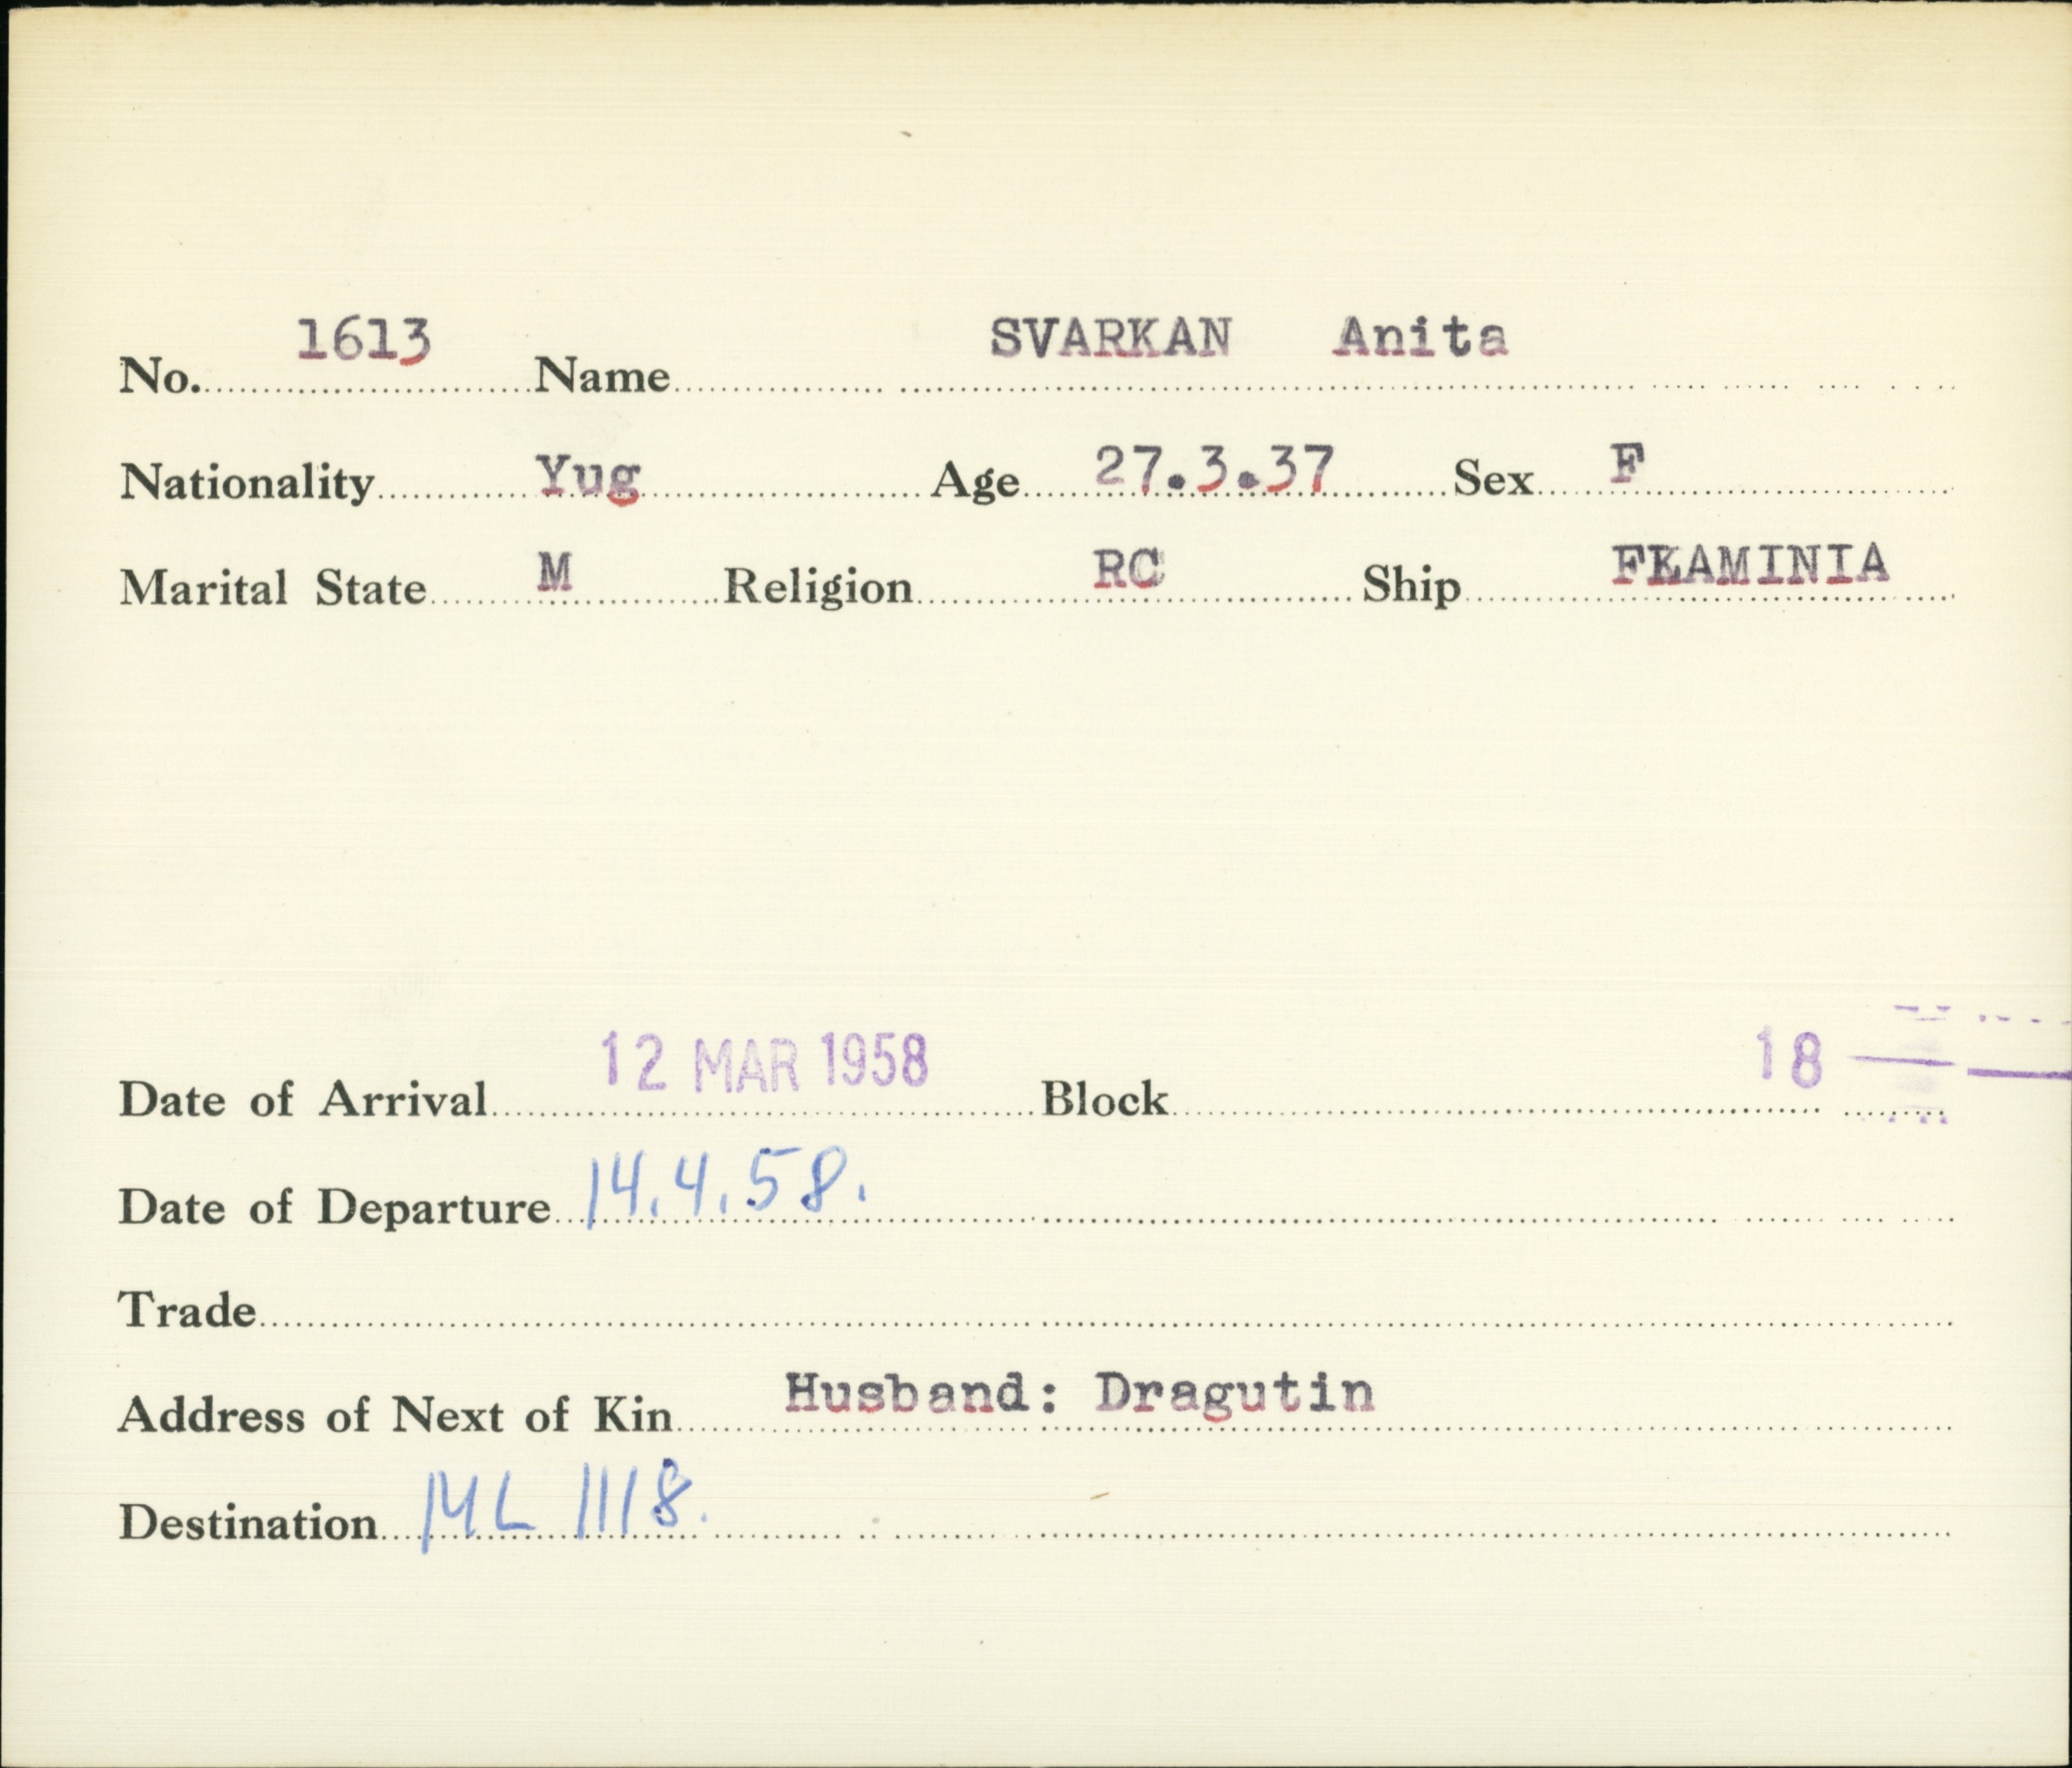 No. 1613 Name SVARKAN Anita
Nationality Yug Age 27.3.37 Sex F
Marital State M Religion RC Ship FLAMINIA
Date of Arrival 12 MAR 1958 Block 18
Date of Departure 14.4.58.
Trade
Address of Next of Kin Husband: Dragutin
Destination ML 1118.